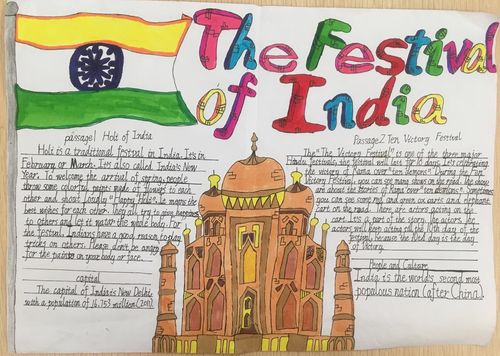 The Festival
of India
passage1 Holi of India
Holi is a traditional festival in India. It's in
February or March. It's also called India's New
Year. To welcome the arrival of spring, people
throw some colorful paints made of flowers to each
other and shout loudly "Happy Holi". It means the
best wishes for each other. They all try to give happiness
to others and let it water the whole body. For
the festival, Indians have a good reason to play
tricks on others. Please don't be angry
for the paints on your body or face.
capital
The capital of India's New Delhi,
with a population of 16.753 million (2011)
Passage2 Ten Victory Festival
The "Ten Victory Festival" is one of the three major
Hindu festivals, the festival will last for 10 days. It's celebrating
the victory of Rama over "ten demons". During the Ten
Victory Festival, you can see many shows on the road. The shows
are about the stories of Rama over "ten demons".
you can see some red and green ox carts and elephant
cart on the road. There are actors passing on the
cart. It's a part of the story. The actors
will keep acting till the 10th day of the
festival, because the 10th day is the day
of victory.
People and Culture
India is the world's second most
populous nation (after China).